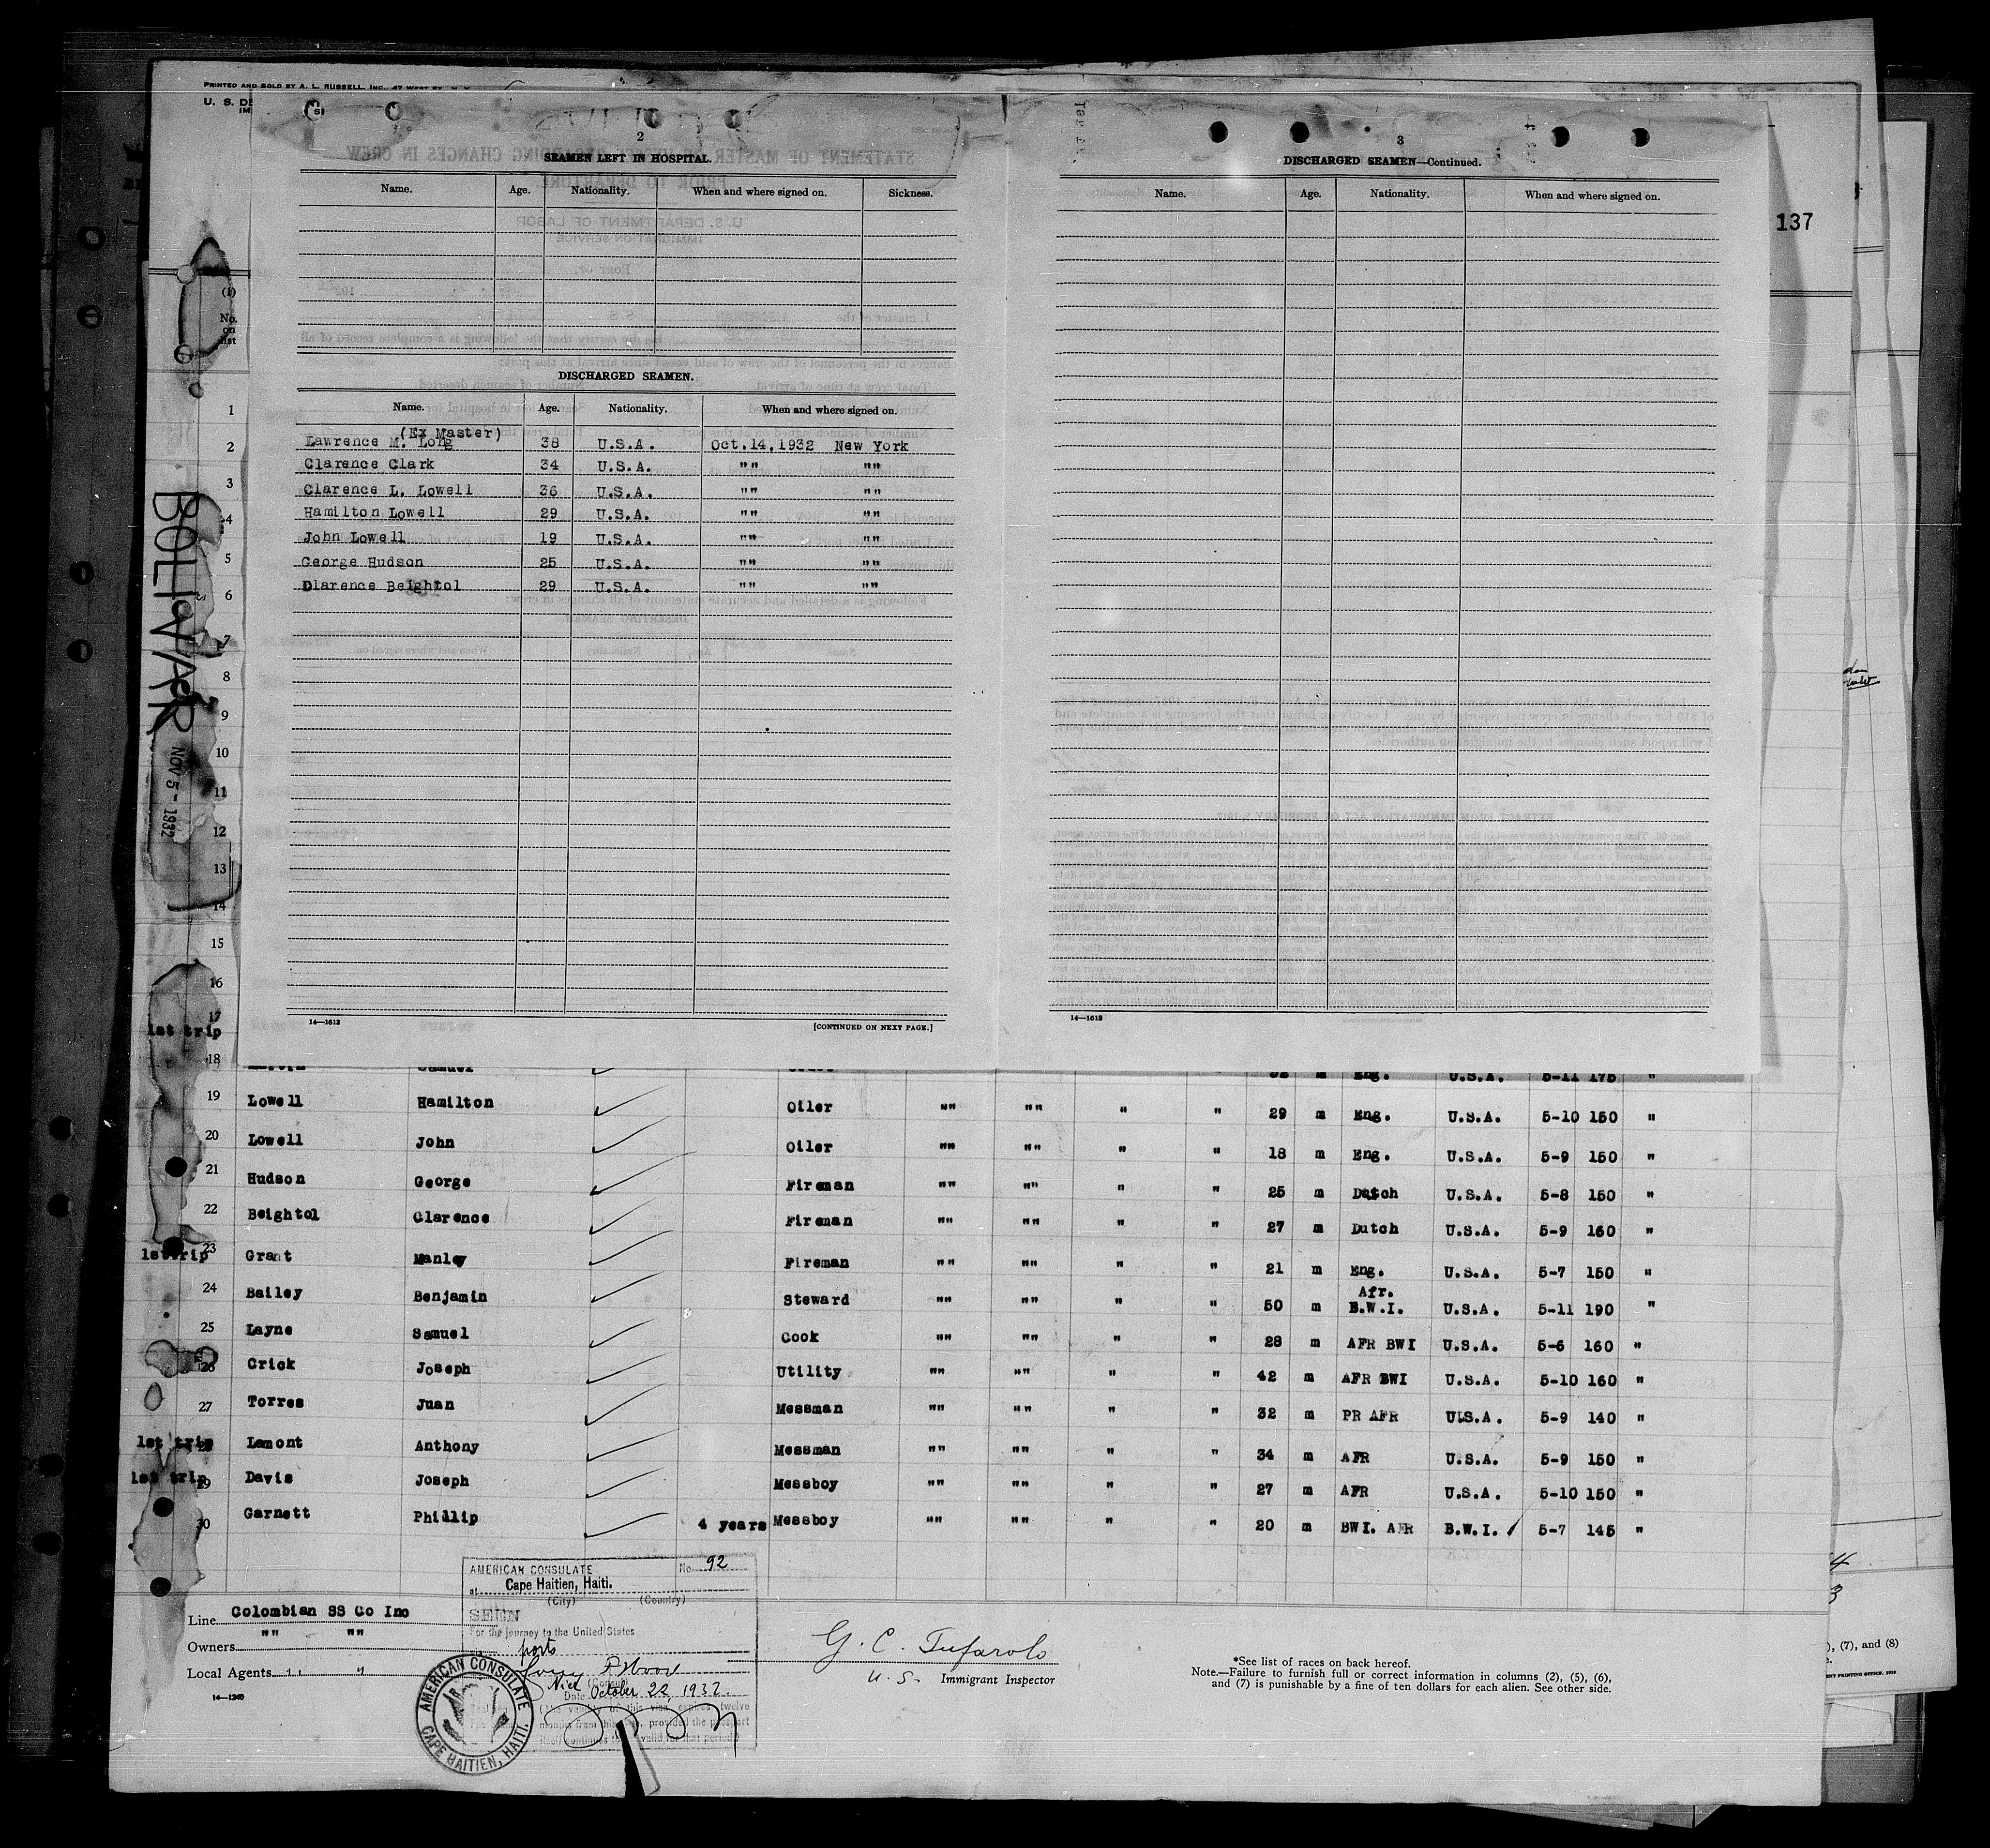 PRINTED AND SOLD BY A. L. RUSSELL, INC.
U. S. DE
IM
2
SEAMEN LEFT IN HOSPITAL.
Name. Age. Nationality. When and where signed on. Sickness.
DISCHARGED SEAMEN.
Name. Age. Nationality. When and where signed on.
(Ex Master)
Lawrence M. Long 38 U.S.A. Oct.14,1932 New York
Clarence Clark 34 U.S.A. "" ""
Clarence L. Lowell 36 U.S.A. "" ""
Hamilton Lowell 29 U.S.A. "" ""
John Lowell 19 U.S.A. "" ""
George Hudson 25 U.S.A. "" ""
Dlarence Beightol 29 U.S.A. "" ""
14—1613
[CONTINUED ON NEXT PAGE.]
3
DISCHARGED SEAMEN—Continued.
Name. Age. Nationality. When and where signed on.
14—1613
137
(1)
No.
on
list
1
2
3
4
5
6
7
8
9
10
11
12
13
14
15
16
17
1st trip
18
BOLIVAR
NOV 5 - 1932
Samuel m Eng. U.S.A. 5-11 175 "
19 Lowell Hamilton Oiler "" "" " " 29 m Eng. U.S.A. 5-10 150 "
20 Lowell John Oiler "" "" " " 18 m Eng. U.S.A. 5-9 150 "
21 Hudson George Fireman "" "" " " 25 m Dutch U.S.A. 5-8 150 "
22 Beightol Clarence Fireman "" "" " " 27 m Dutch U.S.A. 5-9 160 "
1st trip 23 Grant Manley Fireman "" "" " " 21 m Eng. U.S.A. 5-7 150 "
24 Bailey Benjamin Steward "" "" " " 50 m Afr. B.W.I. U.S.A. 5-11 190 "
25 Layne Samuel Cook "" "" " " 28 m AFR BWI U.S.A. 5-6 160 "
26 Crick Joseph Utility "" "" " " 42 m AFR BWI U.S.A. 5-10 160 "
27 Torres Juan Messman "" "" " " 32 m PR AFR U.S.A. 5-9 140 "
1st trip 28 Lamont Anthony Messman "" "" " " 34 m AFR U.S.A. 5-9 150 "
1st trip 29 Davis Joseph Messboy "" "" " " 27 m AFR U.S.A. 5-10 150 "
30 Garnett Phillip 4 years Messboy "" "" " " 20 m BWI. AFR B.W.I. 5-7 145 "
Line Colombian SS Co Inc
Owners "" ""
Local Agents " "
14—1240
AMERICAN CONSULATE No. 92
at Cape Haitien, Haiti.
(City) (Country)
SEEN
For the journey to the United States
ports
(Consul)
Date October 22, 1932.
(The validity of this visa expires twelve
months from this date, provided the passport
itself continues to be valid for that period)
AMERICAN CONSULATE
CAPE HAITIEN, HAITI.
G. C. Tufarolo
U.S. Immigrant Inspector
*See list of races on back hereof.
Note.—Failure to furnish full or correct information in columns (2), (5), (6),
and (7) is punishable by a fine of ten dollars for each alien. See other side.
), (7), and (8)